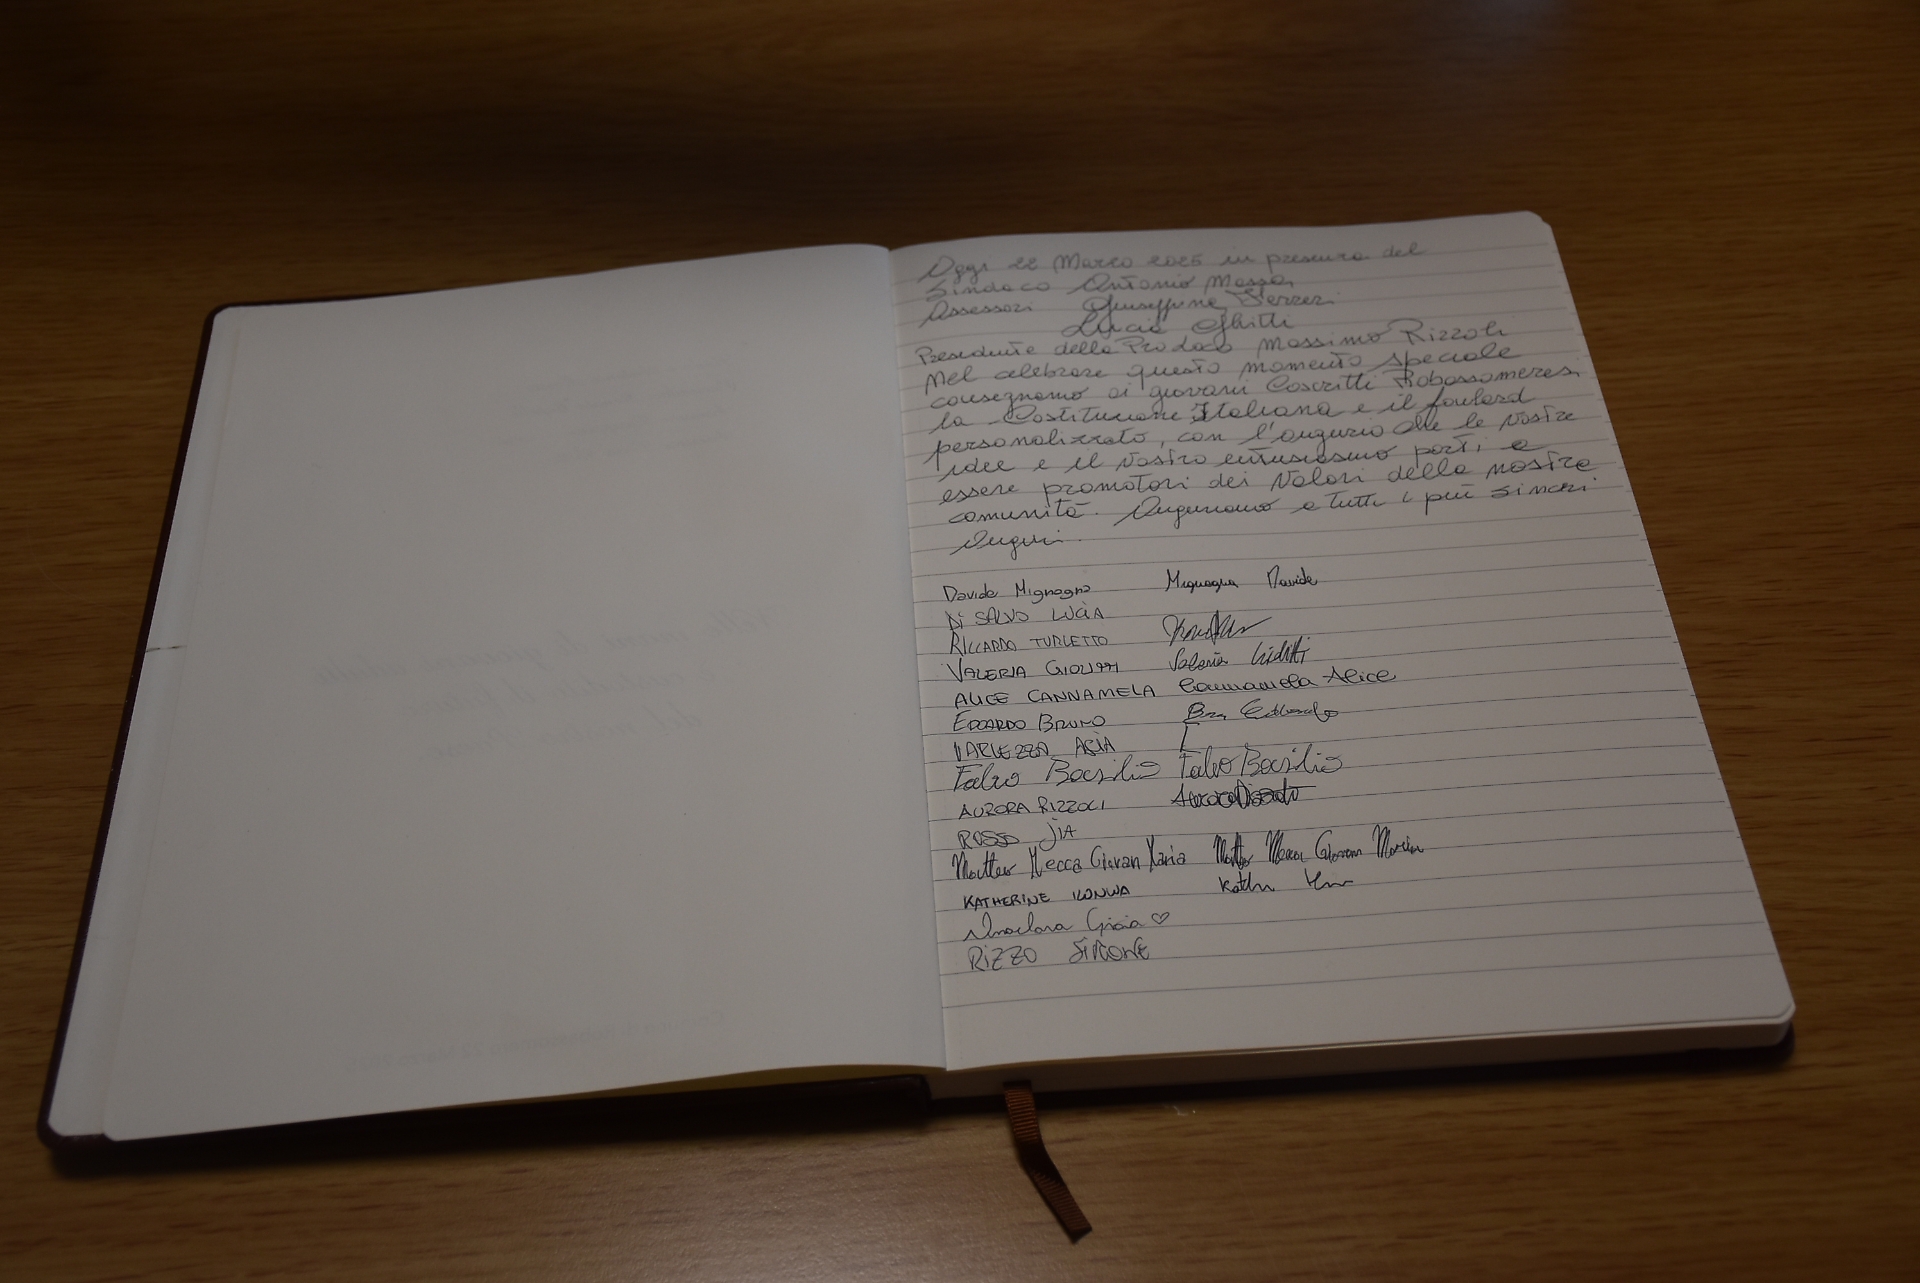 Oggi 22 Marzo 2025 in presenza del
Sindaco Antonio Massa
Assessori Giuseppina Ferreri
Lucia Ghitti
Presidente della ProLoco Massimo Rizzoli
Nel celebrare questo momento speciale
consegnamo ai giovani Coscritti Robassomeresi
la Costituzione Italiana e il foulard
personalizzato, con l'augurio che le Vostre
idee e il Vostro entusiasmo porti, a
essere promotori dei Valori della nostra
comunità. Auguriamo a tutti i più sinceri
Auguri.
Davide Mignogna Mignogna Davide
Di SALVO LUCIA
RICCARDO TURLETTO
VALERIA Valeria
ALICE CANNAMELA Cannamela Alice
EDOARDO BRUNO Edoardo
ASIA
Falvo Basilio Falvo Basilio
AURORA RIZZOLI
ROSSO
Matteo Mecca Giovan Maria Matteo Mecca Giovan Maria
KATHERINE
Gioia ♡
RIZZO SIMONE